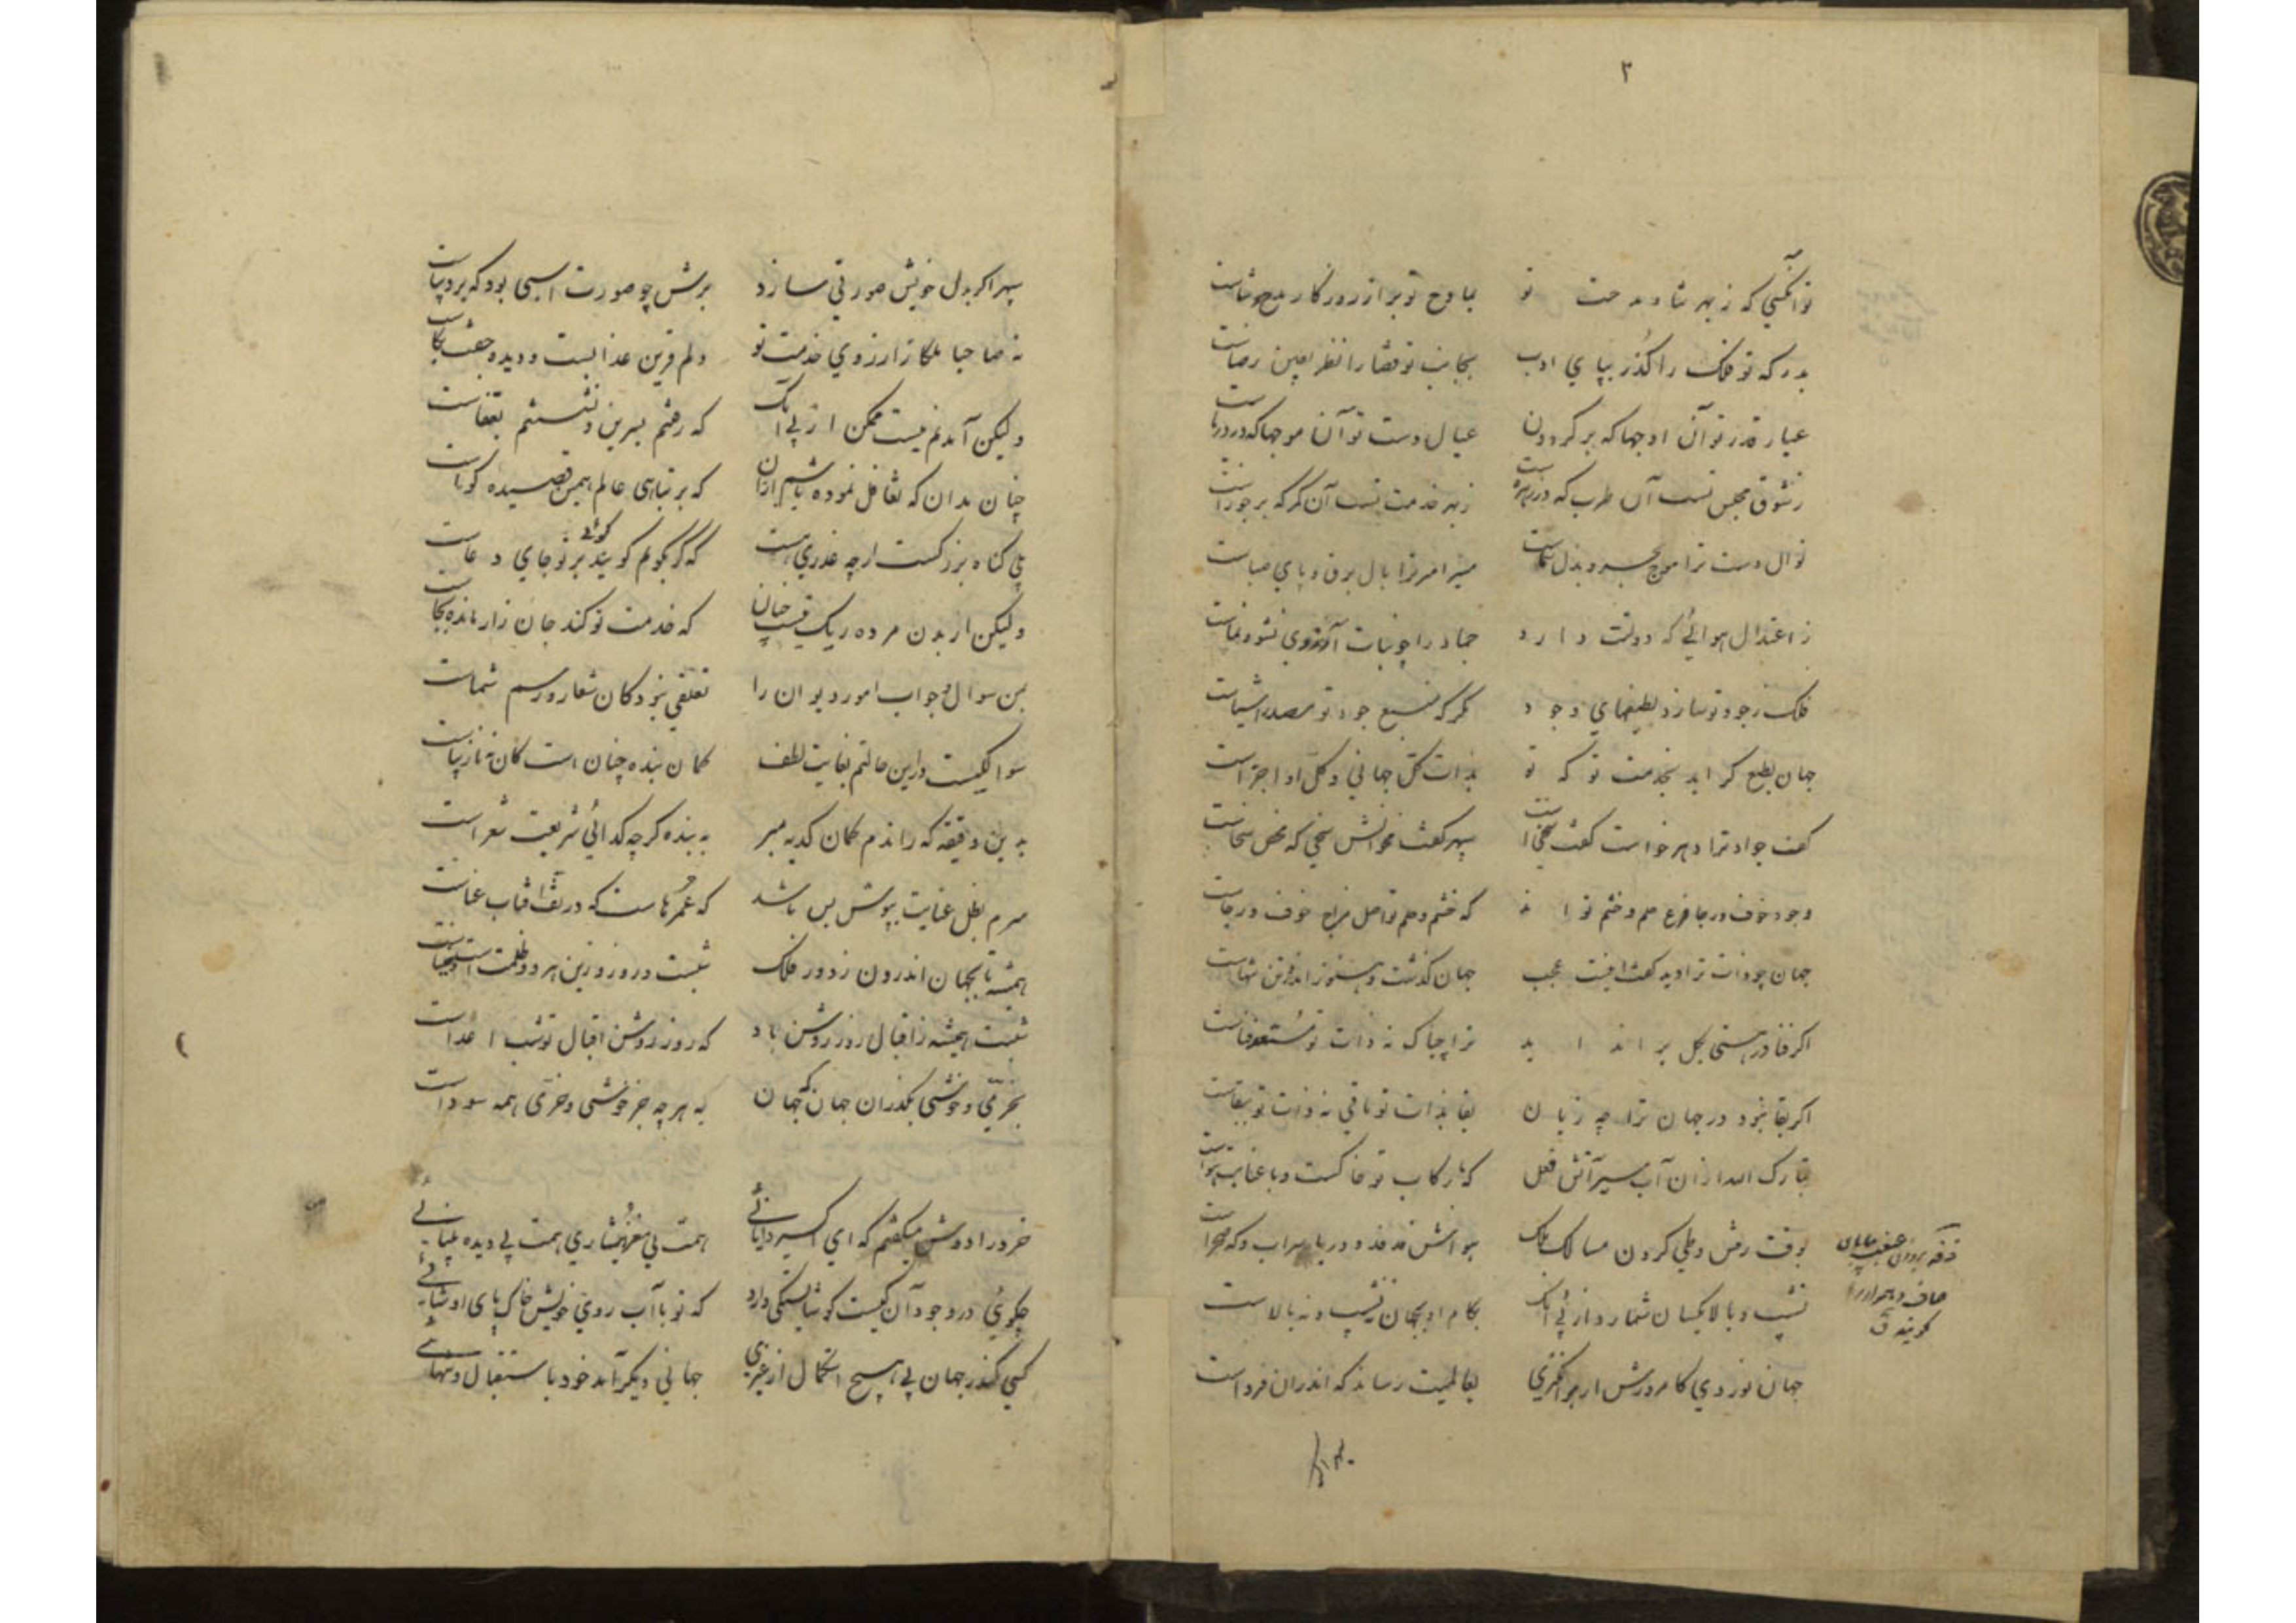 ۲
توانگیی که ز بهر ثنا و مدحت تو بمادح تو بر از روزگار مدح و ثناست
بدرگه تو فلک را گذر بپای ادب بجانب تو قضا را نظر بعین رضاست
عیار قدر تو آن اوجها که بر گردون عیال دست تو آن موجها که در دریاست
ز شوق مجلس تست آن طرب که در زهره است ز بهر خدمت تست آن کمر که بر جوزاست
نوال دست ترا موج بحر و بذل سماست مسیر امر ترا بال برق و پای صباست
ز اعتدال هوائی که دولتت دارد جماد را چو نبات آرزوی نشو و نماست
فلک ز جود تو سازد لطیفهای وجود مگر که منبع جود تو مصدر اشیاست
جهان بطبع گراید بخدمت تو که تو بذات کل جهانی و کل او اجزاست
کف جواد ترا دهر خواست گفت سخی است سپهر گفت نخوانش سخی که محض سخاست
وجود خوف و رجا فرع حلم و خشم تو اند که خشم و حلم تو اصل مزاج خوف و رجاست
جهان چو ذات ترا دید گفت اینت عجب جهان گذشت و هنوز اندرین تنهاست
اگر فنا در هستی بگل براندا ید ترا چه باک نه ذات تو مستعد فناست
اگر بقا نبود در جهان ترا چه زیان بقا بذات تو باقی نه ذات تو ببقاست
تبارک الله از ان آب سیر آتش فعل که با رکاب تو خاکست و با عنانت هواست
بوقت رفتن و طی کردن مسالک ملک هوانش فدفد و دریا سراب و که صحراست
فدفد بروزن
صاف و هموار را
گویند ق
نشیب و بالا یکسان شمارد از پی آنک بگام او بجهان نه نشیب و نه بالاست
جهان نوردی کامروزش ار برانگیزی بعالمیت رساند که اندران فرداست
سپهر اگر بدل خویش صورتی سازد برش چو صورت اسبی بود که بر دیباست
نه صاحبا ملکا ز ارزوی خدمت تو دلم قرین عذابست و دیده جفت بکاست
ولیکن آمدنم نیست ممکن از پی آنک که رفتنم بسرین و نشستنم بقفاست
چنان بدان که تغافل نموده باشم ازان که بر تباهی عالم همین قصیده گواست
بلی گناه بزرگست ارچه عذری هست که گر بگویم گویند بر تو جای دعاست
ولیکن از بدن مرده ریک نیست چنان که خدمت تو کند جان زار مانده بجاست
بمن سوال و جواب امور دیوان را تعلقی نبود کان شعار و رسم شماست
سوالکیست درین حالتم بغایت لطف گمان بنده چنان است کان نه نازیباست
بدین دقیقه که راندم گمان کدیه مبر به بنده گرچه گدائی شریعت شعراست
سرم بظل عنایت بپوش بس باشد که عمرهاست که در تف آفتاب عناست
همیشه تا بجهان اندرون ز دور فلک شبست و روز و زین هر دو ظلمتست و ضیاست
شبت همیشه ز اقبال روز روشن باد که روز روشن اقبال تو شب اعداست
بخرمی و خوشی بگذران جهان که جهان به هرچه جز خوشی و خرمی همه سوداست
خرد را دوش میگفتم که ای اکسیر دانائی همت بی مغز هشیاری همت بی دیده بینائی
چگوئی در وجود آن کیست کو شایستگی دارد که تو با آب روی خویش خاک پای او شائی
کسی کندر جهان بی هیچ استکمال از غیری جهانی دیگر آمد خود باستقبال و تنهائی